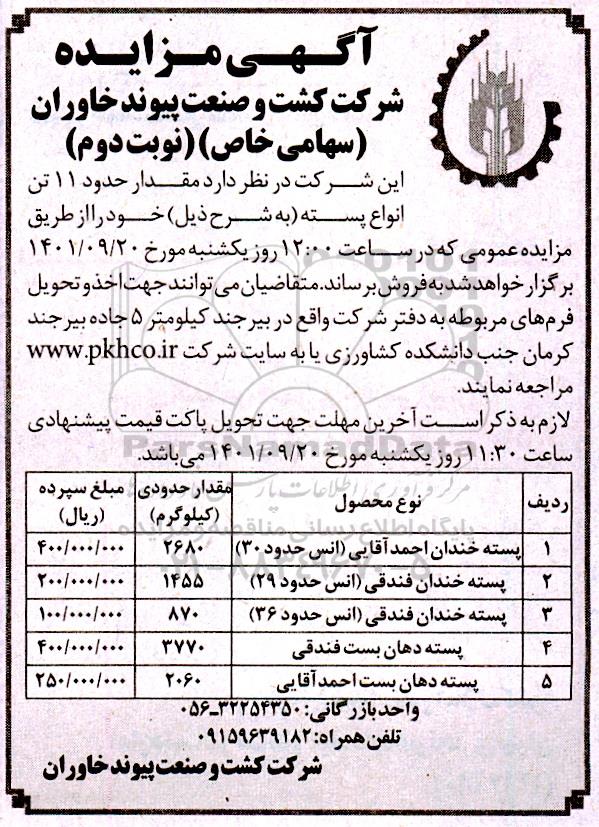 آگهی مزایده
شرکت کشت و صنعت پیوند خاوران
(سهامی خاص) (نوبت دوم)
این شرکت در نظر دارد مقدار حدود ۱۱ تن
انواع پسته (به شرح ذیل) خود را از طریق
مزایده عمومی که در ساعت ۱۲:۰۰ روز یکشنبه مورخ ۱۴۰۱/۰۹/۲۰
برگزار خواهد شد به فروش برساند. متقاضیان می‌توانند جهت اخذ و تحویل
فرم‌های مربوطه به دفتر شرکت واقع در بیرجند کیلومتر ۵ جاده بیرجند
کرمان جنب دانشکده کشاورزی یا به سایت شرکت www.pkhco.ir
مراجعه نمایند.
لازم به ذکر است آخرین مهلت جهت تحویل پاکت قیمت پیشنهادی
ساعت ۱۱:۳۰ روز یکشنبه مورخ ۱۴۰۱/۰۹/۲۰ می‌باشد.
ردیف نوع محصول مقدار حدودی (کیلوگرم) مبلغ سپرده (ریال)
۱ پسته خندان احمدآقایی (انس حدود ۳۰) ۲۶۸۰ ۴۰۰/۰۰۰/۰۰۰
۲ پسته خندان فندقی (انس حدود ۲۹) ۱۴۵۵ ۲۰۰/۰۰۰/۰۰۰
۳ پسته خندان فندقی (انس حدود ۳۶) ۸۷۰ ۱۰۰/۰۰۰/۰۰۰
۴ پسته دهان بست فندقی ۳۷۷۰ ۴۰۰/۰۰۰/۰۰۰
۵ پسته دهان بست احمدآقایی ۲۰۶۰ ۲۵۰/۰۰۰/۰۰۰
واحد بازرگانی: ۳۲۲۵۴۳۵۰-۰۵۶
تلفن همراه: ۰۹۱۵۹۶۳۹۱۸۲
شرکت کشت و صنعت پیوند خاوران
ParsNamadData
پایگاه اطلاع رسانی مناقصه و مزایده
۰۲۱-۸۸۳۴۹۶۷۰-۵